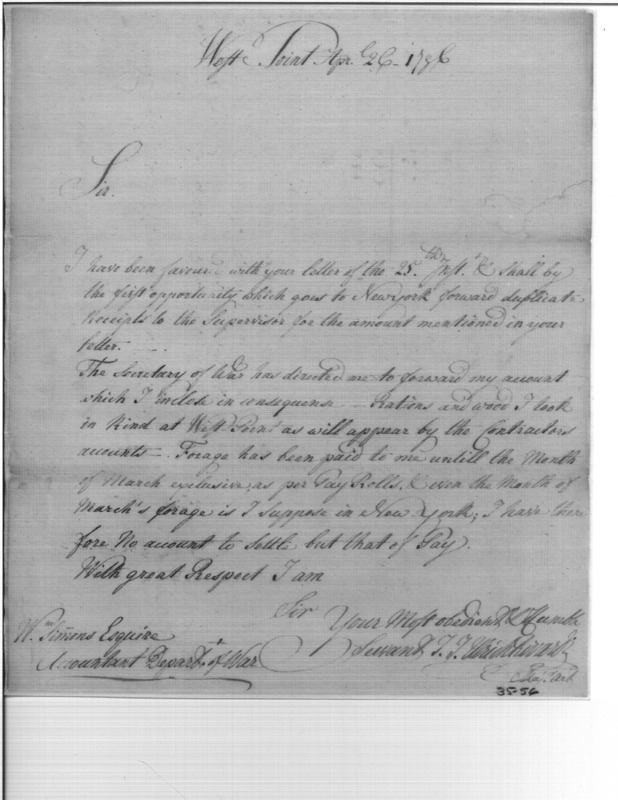 West Point Apr. 26 - 1796
Sir.
I have been favoured with your letter of the 25.th Inst. & shall by
the first opportunity which goes to New York forward duplicate
Receipts to the Supervisor for the amount mentioned in your
letter. —
The Secretary of War has directed me to forward my account
which I inclose in consequense — Rations and wood I took
in Kind at West Point as will appear by the Contractors
acounts — Forage has been paid to me untill the Month
of March exclusive, as per Pay Rolls, & even the Month of
March's forage is I suppose in New York; I have there
fore No account to settle but that of Pay.
With great Respect I am
Sir Your Most obedient & Humble
Servant J. J. Ulrich Rivardi
Maj.
Wm Simmons Esquire
Accountant Depart.t of War
35-56